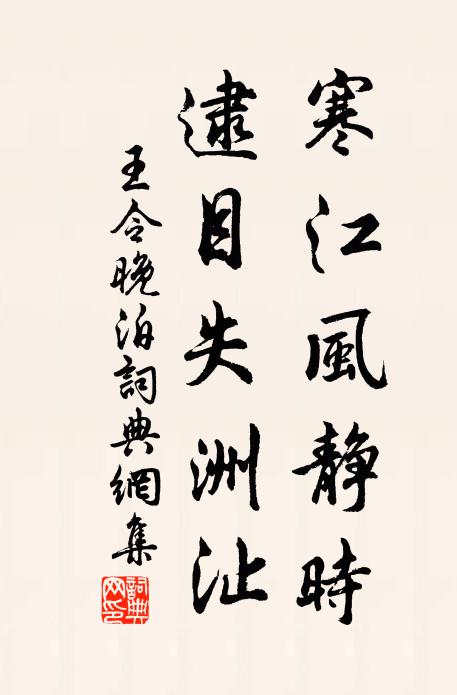 寒江風靜時
逮目失洲沚
王令晚泊詞典網集
詞典網印